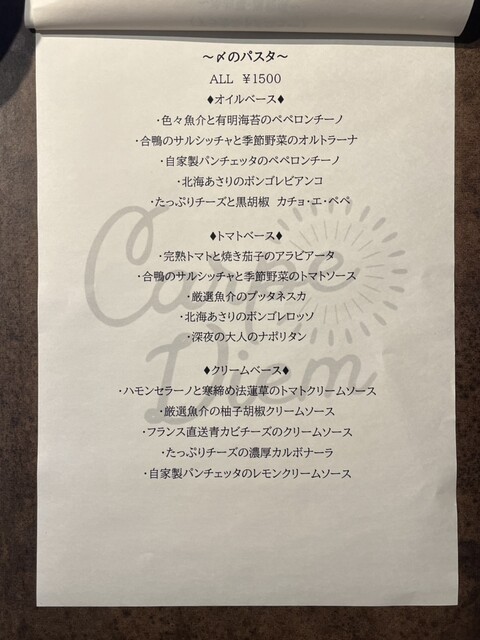 ～〆のパスタ～
ALL ￥1500
♦オイルベース♦
・色々魚介と有明海苔のペペロンチーノ
・合鴨のサルシッチャと季節野菜のオルトラーナ
・自家製パンチェッタのペペロンチーノ
・北海あさりのボンゴレビアンコ
・たっぷりチーズと黒胡椒 カチョ・エ・ペペ
♦トマトベース♦
・完熟トマトと焼き茄子のアラビアータ
・合鴨のサルシッチャと季節野菜のトマトソース
・厳選魚介のプッタネスカ
・北海あさりのボンゴレロッソ
・深夜の大人のナポリタン
♦クリームベース♦
・ハモンセラーノと寒締め法蓮草のトマトクリームソース
・厳選魚介の柚子胡椒クリームソース
・フランス直送青カビチーズのクリームソース
・たっぷりチーズの濃厚カルボナーラ
・自家製パンチェッタのレモンクリームソース
Carpe
Diem